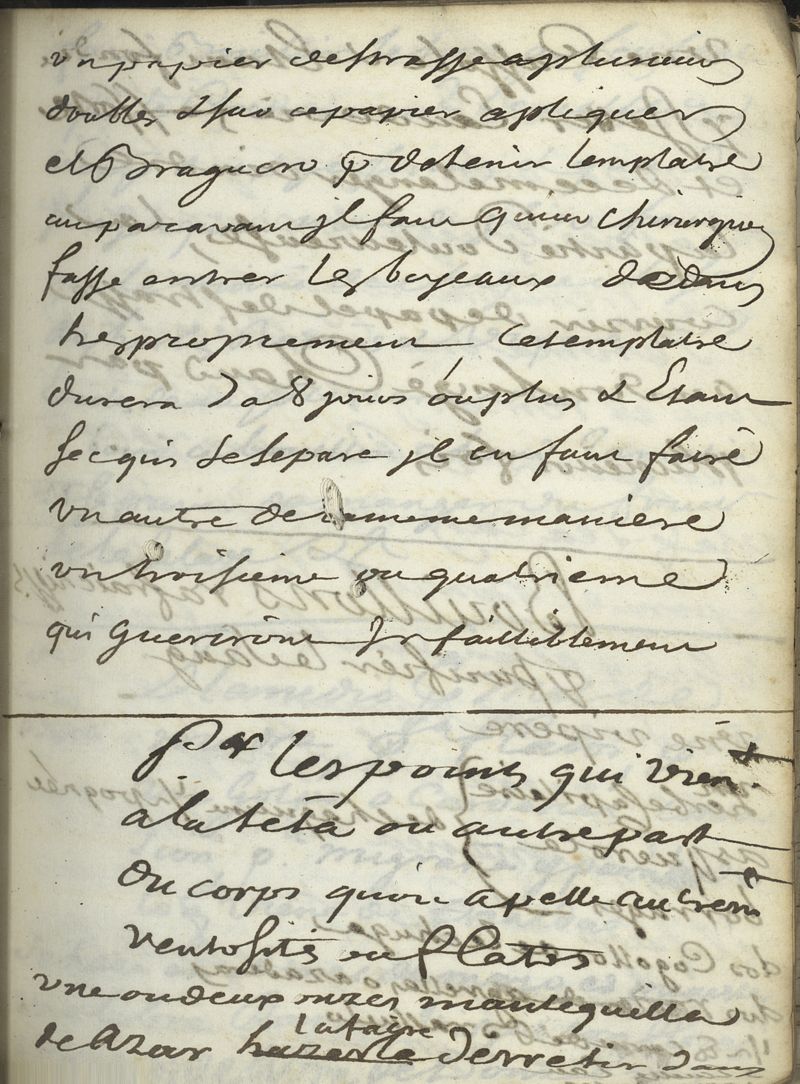 un papier destrasse a plusieurs
doubles & sur ce papier apliquer
et Braguero p detenir lemplatre
auparavant jl faut quun chirurgien
fasse entrer les boyeaux dedans
tres proprement Cet emplatre
durera 7 a 8 jours ou plus & Etant
sec quis se separe jl en faut faire
un autre de la meme maniere
un troisieme ou quatrieme
qui guerirons Jnfailliblement
Par les points qui vien
a la teta ou autre part
du corps quon apelle autrem
ventosités ou flatos
une ou deux onzes mantequilla
de Azar la faire derretir dans